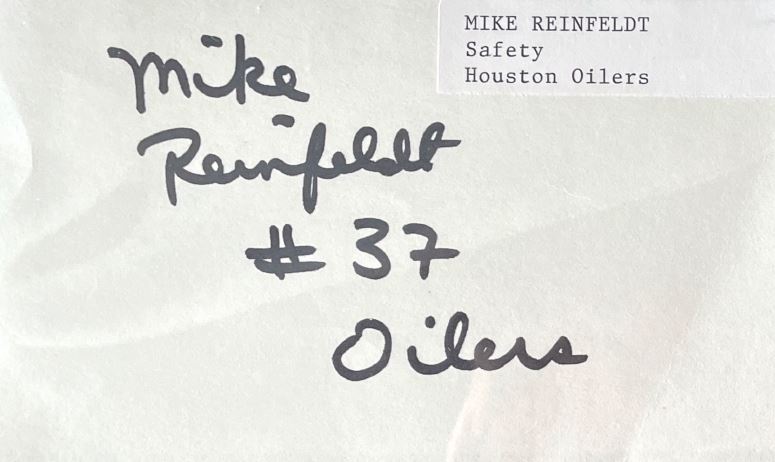 MIKE REINFELDT
Safety
Houston Oilers
Mike
Reinfeldt
# 37
Oilers